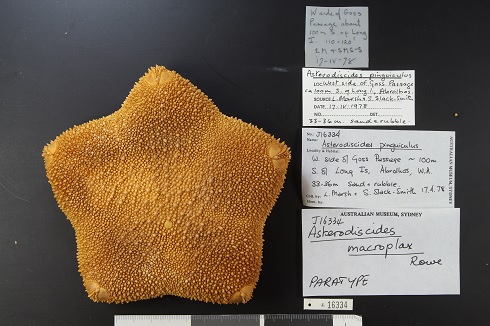 W side of Goss
Passage about
100m S. of Long
I 110-120'
LM & SMS-S
17-IV-'78
Asterodiscides pinguiculus
LOC. West side of Goss Passage
ca 100m S. of Long I., Abrolhos.
SOURCE L. Marsh & S. Slack-Smith
DATE. 17.IV.1978
NO. DET.
33-36m. sand & rubble.
No. J16334
Name: Asterodiscides pinguiculus
Locality & Habitat:
W. side of Goss Passage ~ 100m
S. of Long Is, Abrolhos, W.A.
33-36m Sand & rubble.
L. Marsh & S. Slack-Smith 17.4.78
AUSTRALIAN MUSEUM, SYDNEY
J16334
Asterodiscides
macroplax
Rowe
PARATYPE
16334